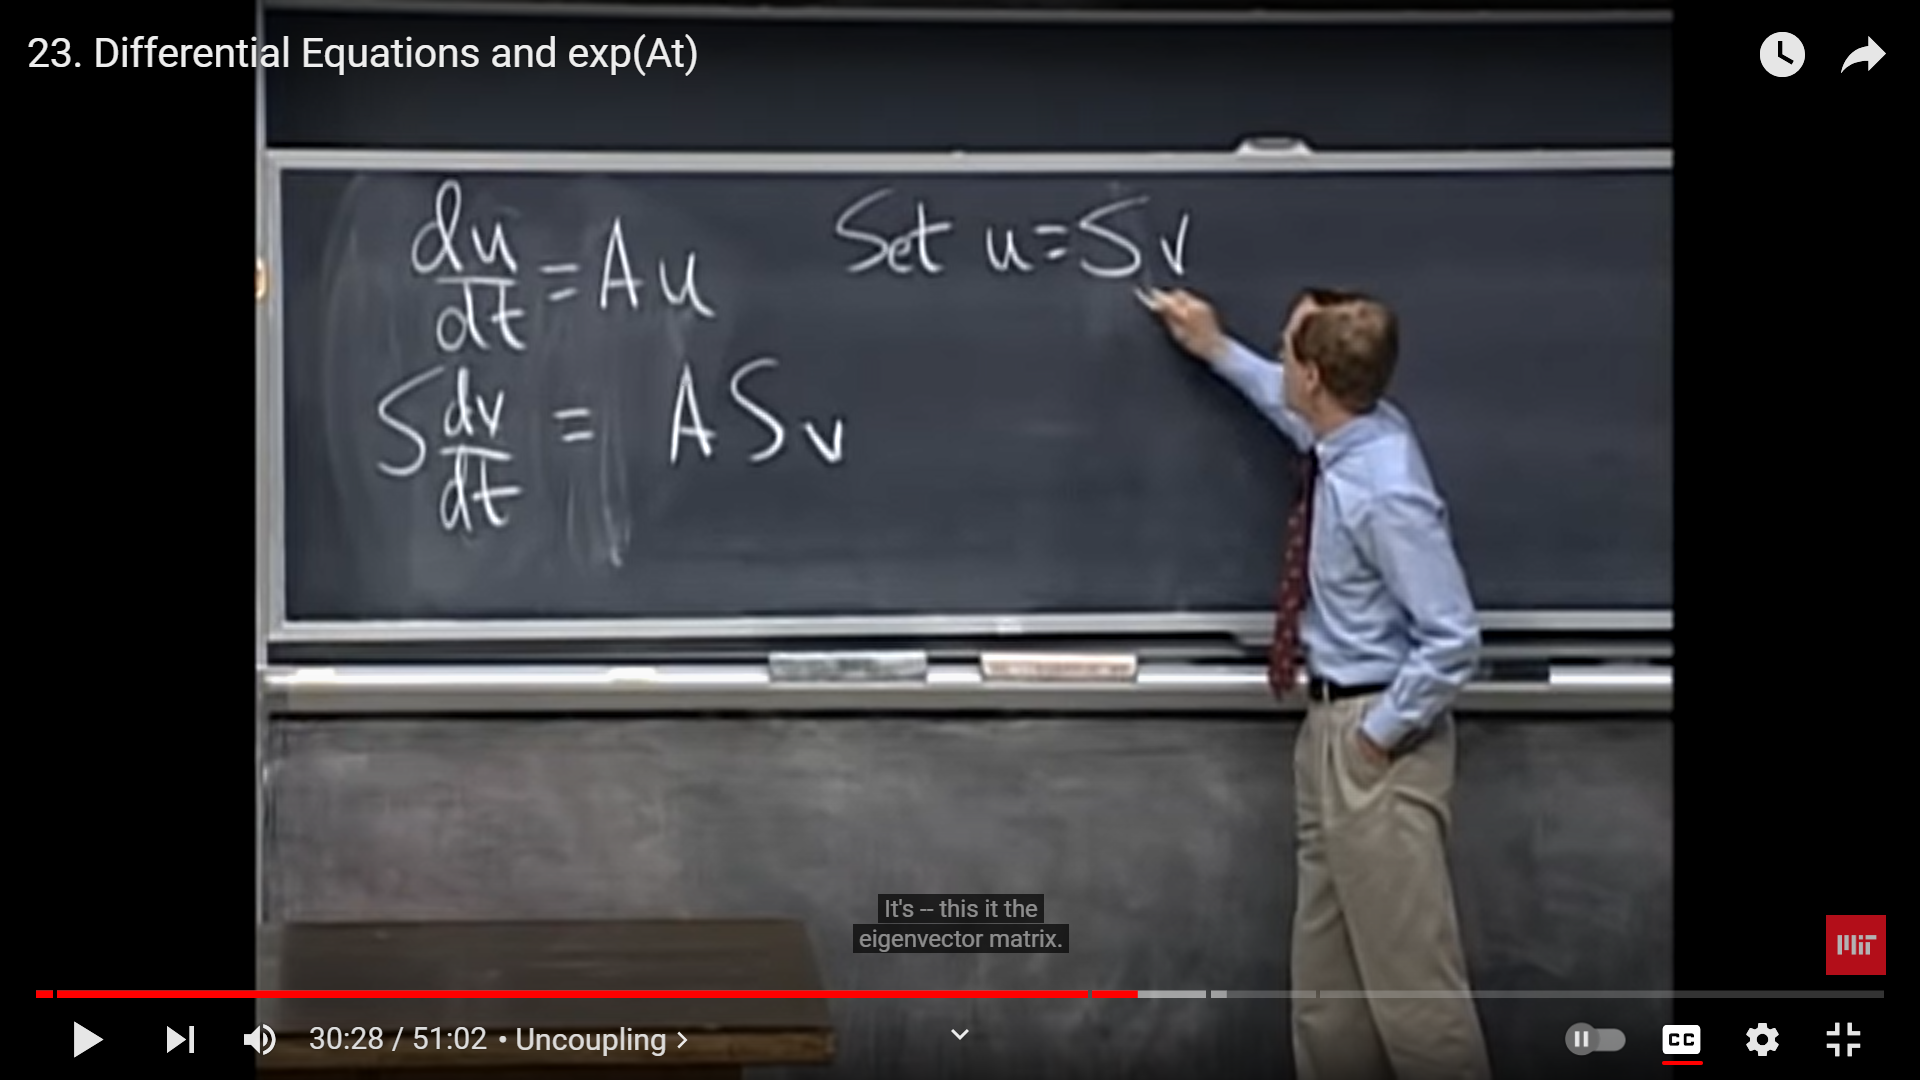 23. Differential Equations and exp(At)
du/dt = Au
Set u = Sv
S dv/dt = ASv
It's -- this it the
eigenvector matrix.
MIT
30:28 / 51:02 • Uncoupling >
CC